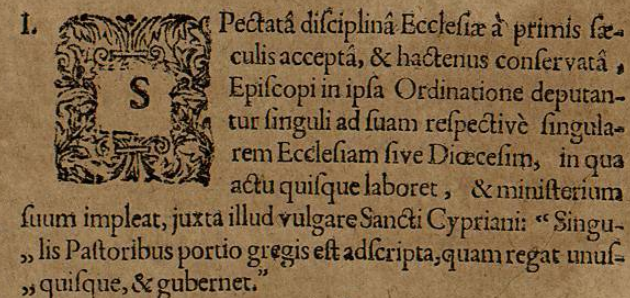 I. SPectatâ diſciplinâ Eccleſiæ à primis ſæ-
culis acceptâ, & hactenus conſervatâ,
Epiſcopi in ipſa Ordinatione deputan-
tur ſinguli ad ſuam reſpectivè ſingula-
rem Eccleſiam ſive Diœceſim, in qua
actu quiſque laboret, & miniſterium
ſuum impleat, juxta illud vulgare Sancti Cypriani: “Singu-
„lis Paſtoribus portio gregis eſt adſcripta, quam regat unuſ-
„quiſque, & gubernet.”